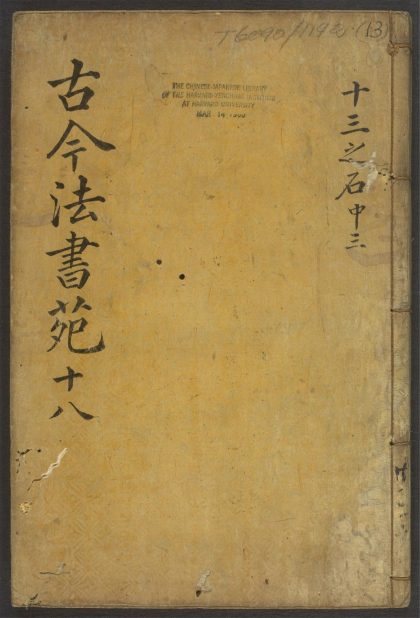 T6090/1194 (13)
THE CHINESE-JAPANESE LIBRARY
OF THE HARVARD-YENCHING INSTITUTE
AT HARVARD UNIVERSITY
MAR 14
十三之石中三
古今法書苑十八